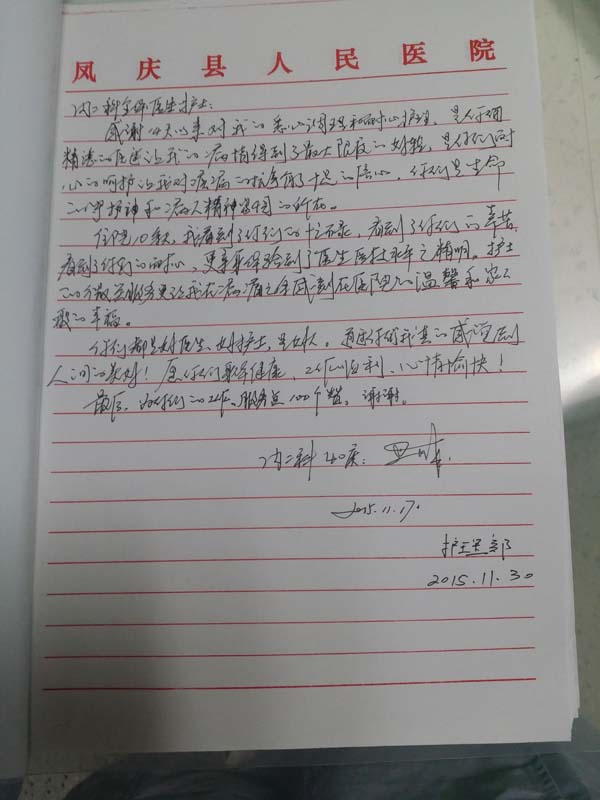 凤庆县人民医院
内二科全体医生护士:
感谢 天以来对我的悉心调理和耐心护理,是你们
精湛的医道让我的病情得到了最大限度的好转,是你们耐
心的呵护让我对疾病的抗争有了十足的信心,你们是生命
的守护神和病人精神 的所在。
住院10多天,我看到了你们的 ,看到了你们的辛苦
看到了你们的耐心,更亲身体验到了医生医技水平之精明。护士
的 服务更让我在病痛之余感到在医院的温馨和家人
般的幸福。
你们都是好医生、好护士,是 。通过你们我真的感觉到
人间的美好!愿你们都健康,工作顺利,心情愉快!
最后,为你们的工作、服务点100个赞,谢谢。
内二科 40床:
2015.11.17.
护理部
2015.11.30